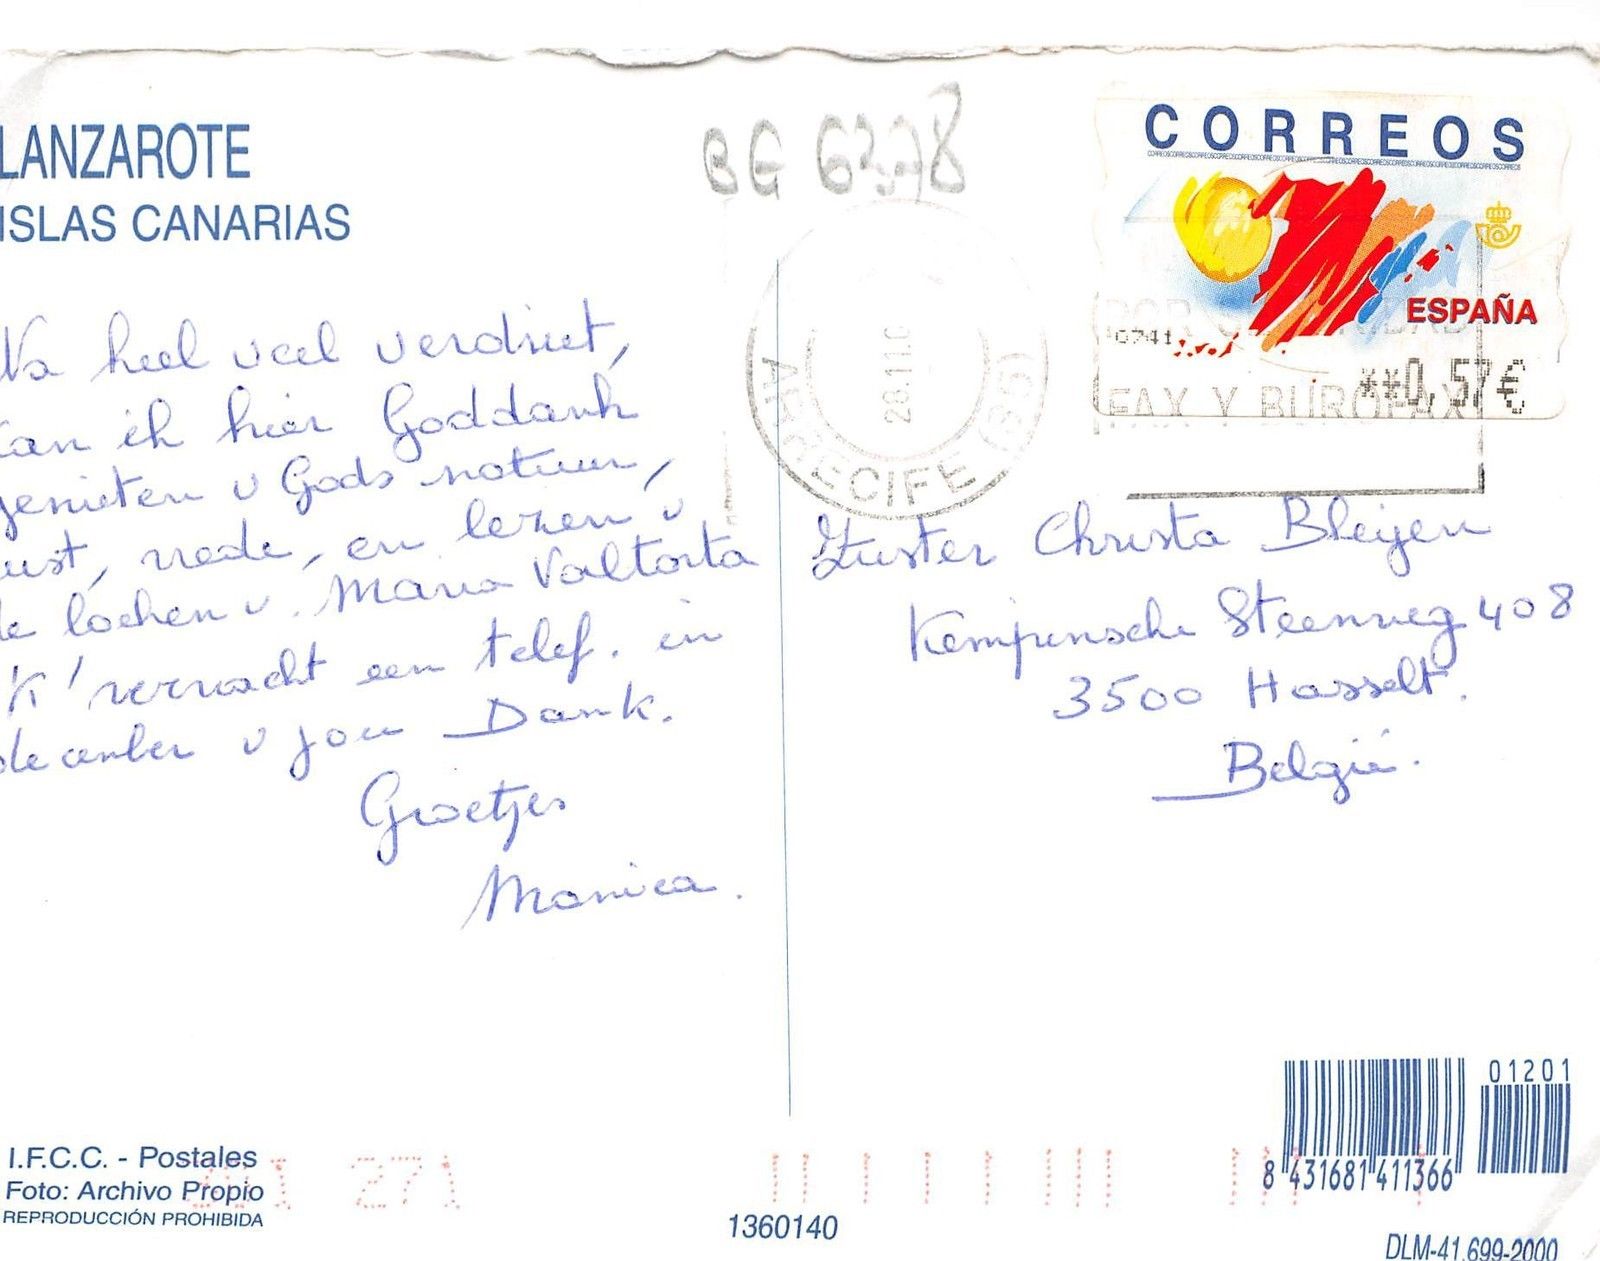 LANZAROTE
ISLAS CANARIAS
BG 6278
CORREOS
ESPAÑA
0741
**0,57€
FAX Y BUROFAX
ARRECIFE (35)
28.11.0
Na heel veel verdriet,
kan ik hier Goddank
genieten v Gods natuur,
rust, vrede, en lezen v
de boeken v. Maria Valtorta
'K verwacht een telef. in
december v jou Dank.
Groetjes
Monica.
Zuster Christa Bleijen
Kempensche Steenweg 408
3500 Hasselt.
België.
I.F.C.C. - Postales
Foto: Archivo Propio
REPRODUCCIÓN PROHIBIDA
271
1360140
01201
8 431681 411366
DLM-41.699-2000